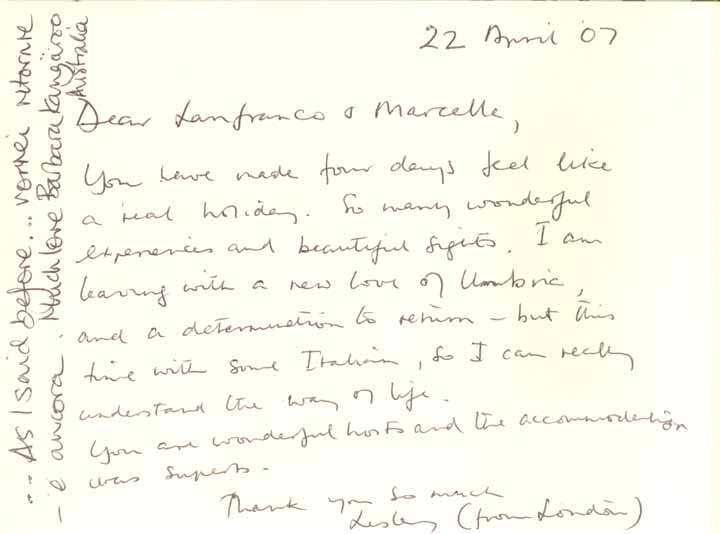 22 April '07
Dear Lanfranco & Marcelle,
You have made four days feel like
a real holiday. So many wonderful
experiences and beautiful sights. I am
leaving with a new love of Umbria,
and a determination to return – but this
time with some Italian, so I can really
understand the way of life.
You are wonderful hosts and the accommodation
was superb.
Thank you so much
Lesley (from London)
... As I said before... vorrei ritornare
– e ancora. Much love Barbara Kangaroo
Australia